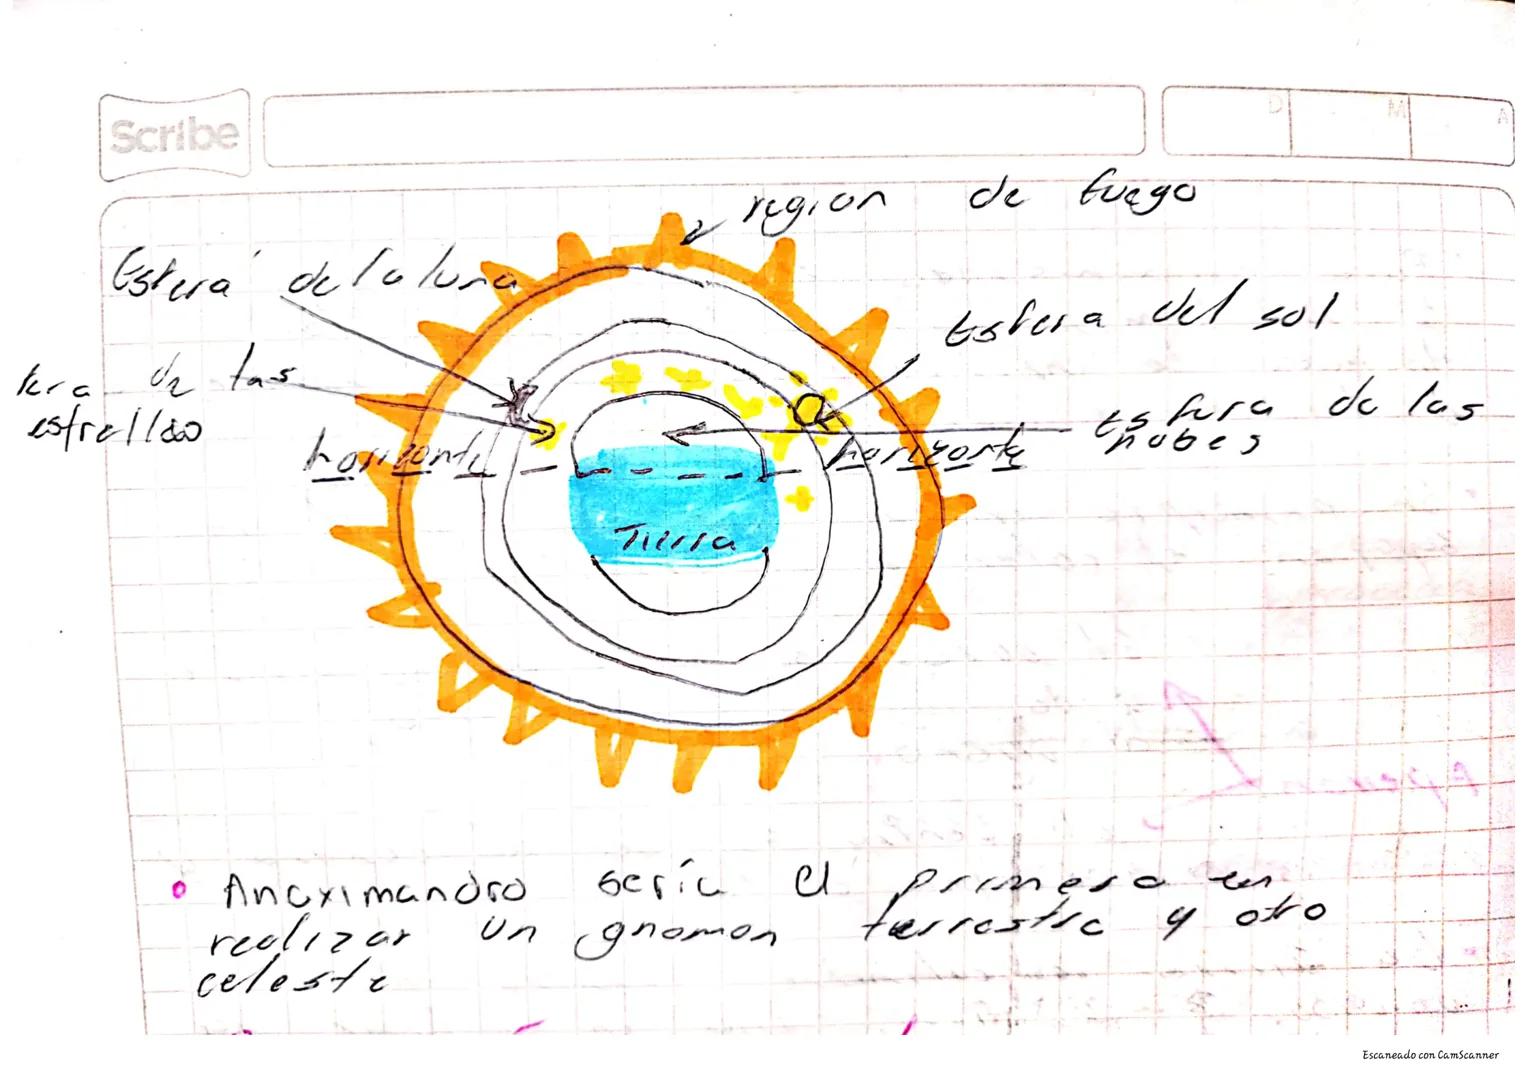 Scribe
D M A
región de fuego
Esfera de la luna
Esfera del sol
de las
estrellas
Esfera de las
nubes
horizonte
horizonte
Tierra
Anaximandro sería el primero en
realizar un gnomon terrestre y otro
celeste
Escaneado con CamScanner